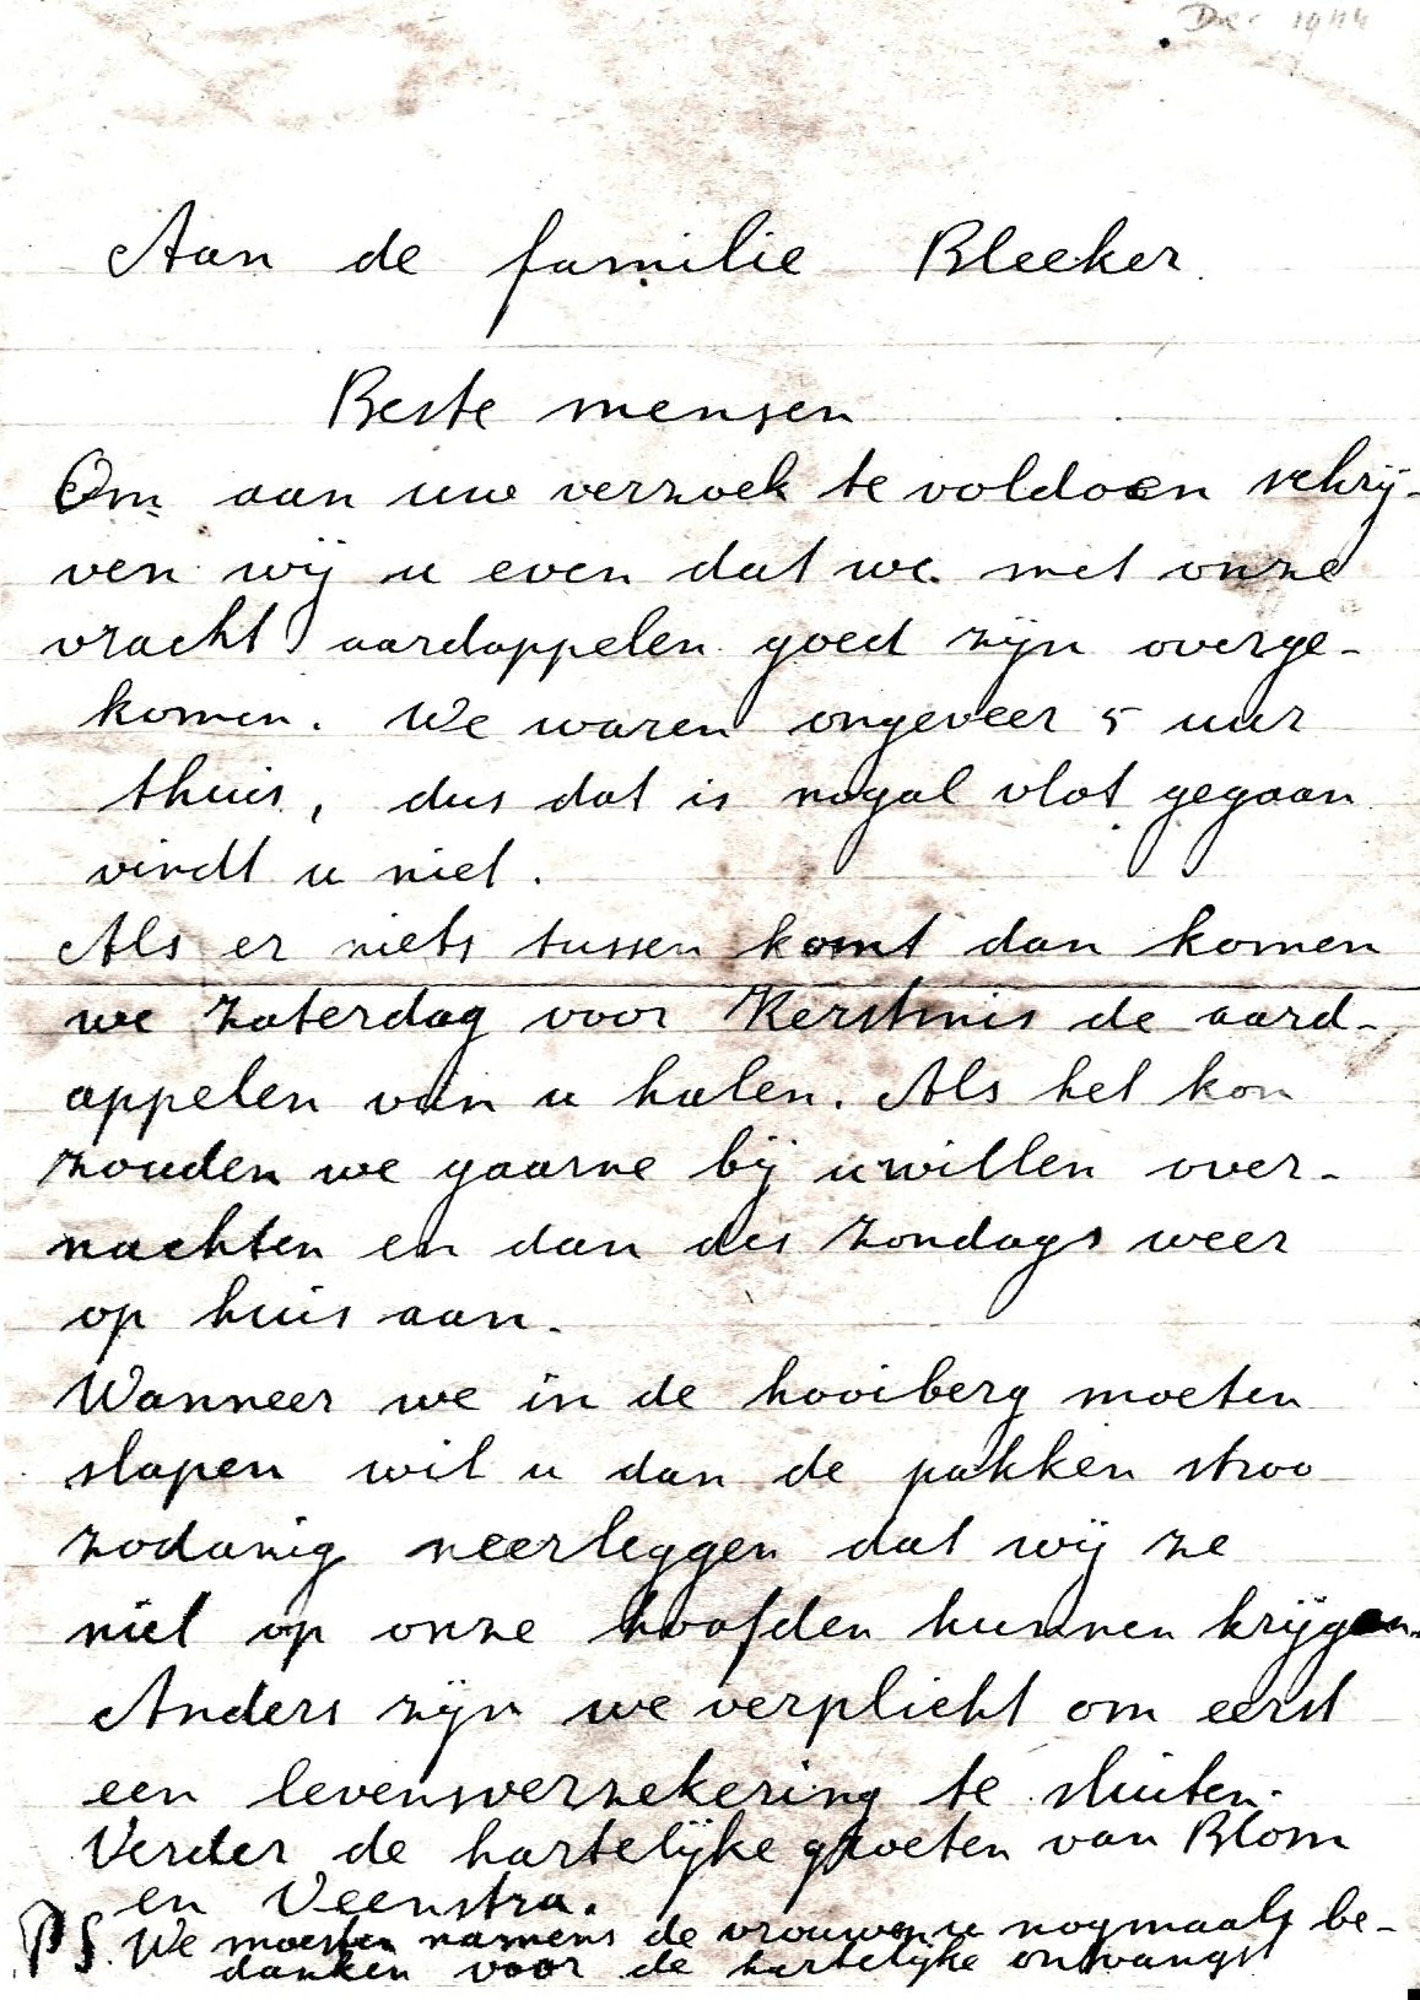 Dec 1944
Aan de familie Bleeker.
Beste mensen
Om aan uw verzoek te voldoen schrij-
ven wij u even dat we met onze
vracht aardappelen goed zijn overge-
komen. We waren ongeveer 5 uur
thuis, dus dat is nogal vlot gegaan
vindt u niet.
Als er niets tussen komt dan komen
we zaterdag voor Kerstmis de aard-
appelen van u halen. Als het kon
zouden we gaarne bij u willen over-
nachten en dan des zondags weer
op huis aan.
Wanneer we in de hooiberg moeten
slapen wil u dan de pakken stroo
zodanig neerleggen dat wij ze
niet op onze hoofden kunnen krijgen.
Anders zijn we verplicht om eerst
een levensverzekering te sluiten.
Verder de hartelijke groeten van Blom
en Veenstra.
PS. We moesten namens de vrouwen u nogmaals be-
danken voor de hartelijke ontvangst